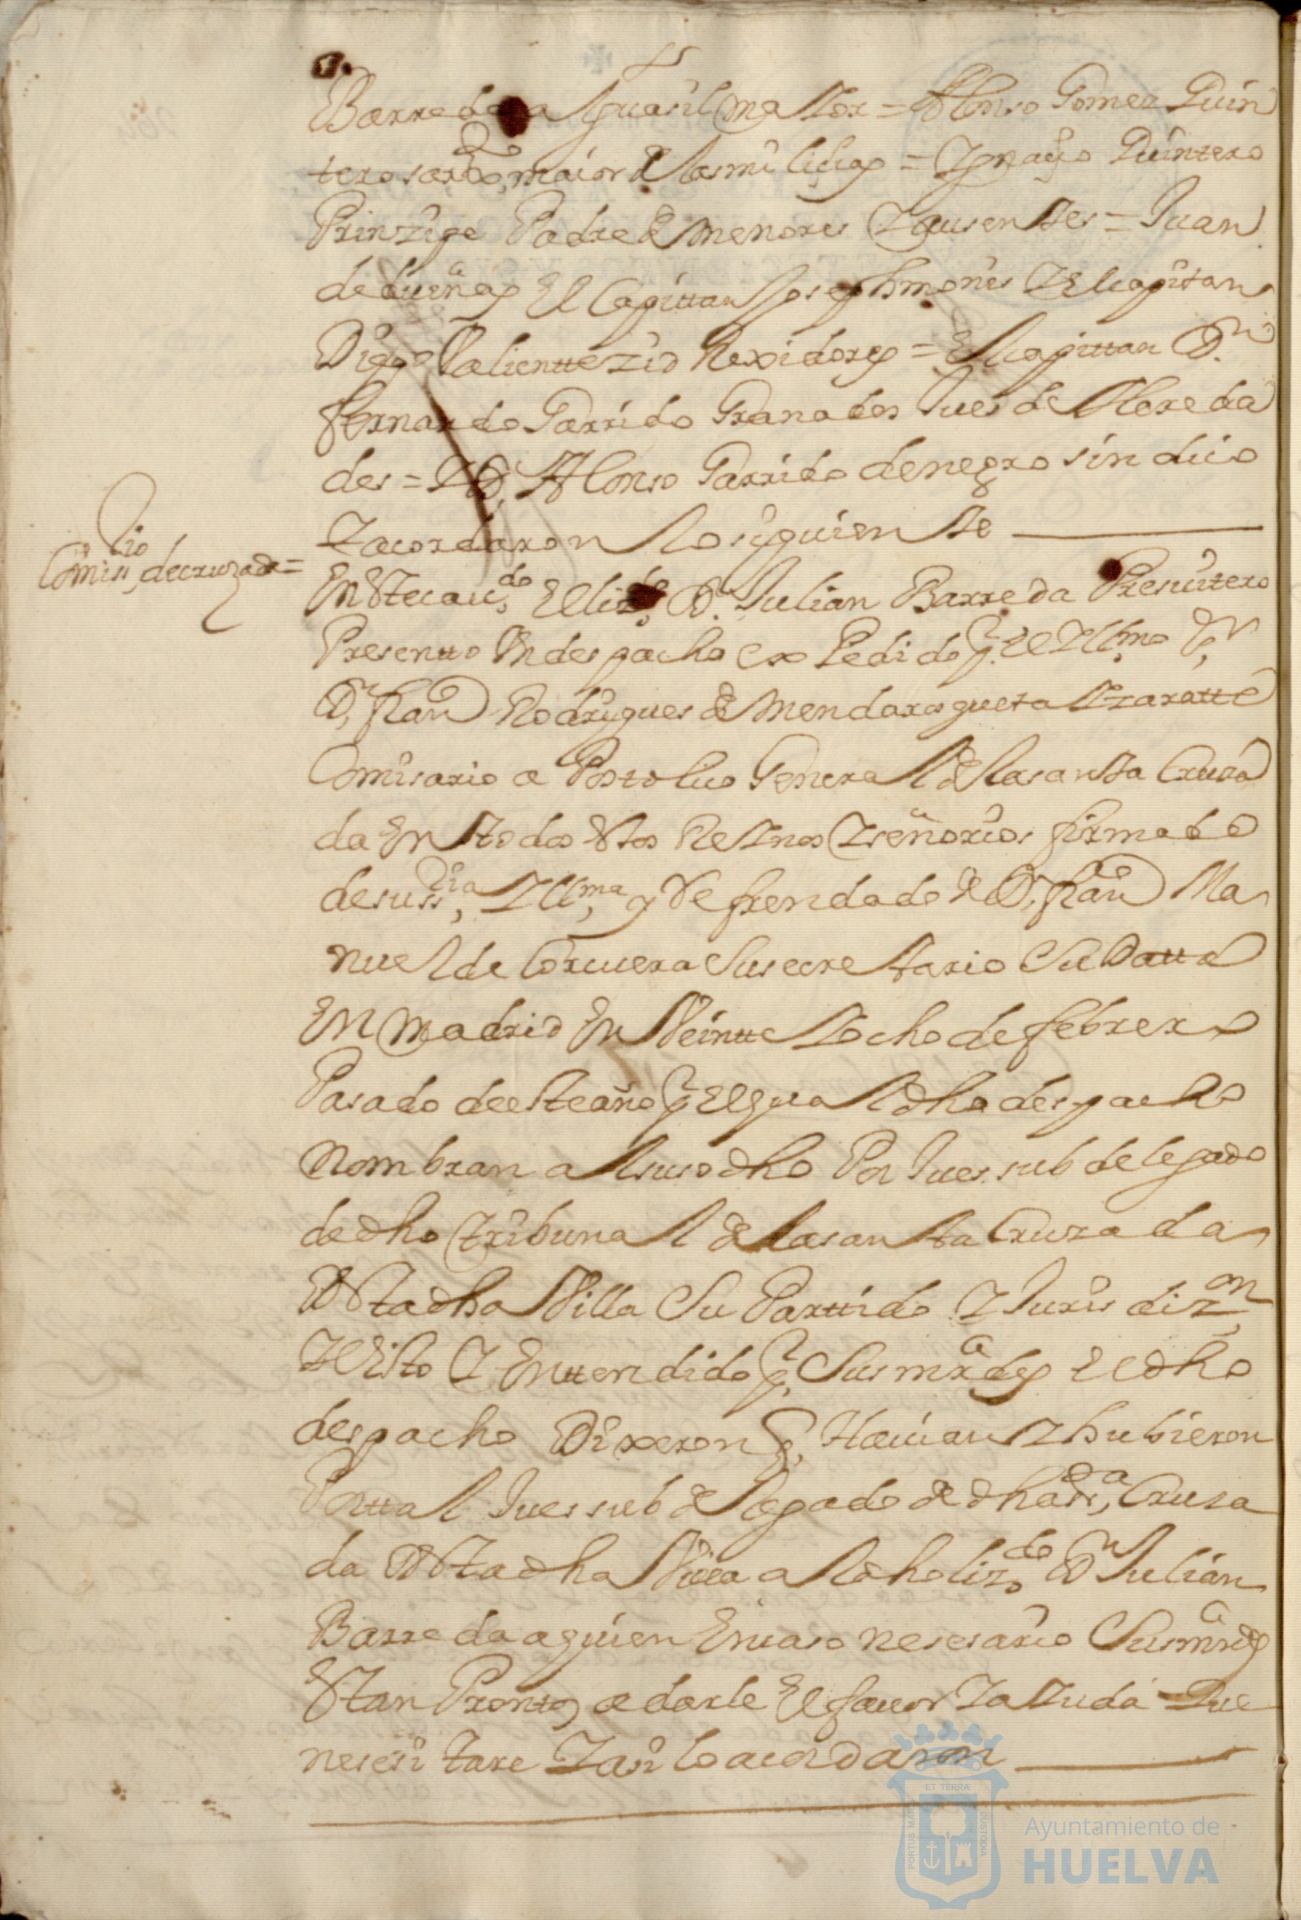 Barreda Alguasil maior = Alonso Gomez Quin
tero sargto maior de las miliçias = Ygnaçio Quintero
Prinzipe Padre de menores Y ausentes = Juan
de bueñas El Capittan Joseph mones Y El capitan
Diego Valientte zid Rexidores = El capittan Dn
fernando Garrido Granados Jues de Hereda
des = Y Dn Alonso Garrido de negro sindico
Y acordaron lo siguiente
Comissrio de cruzada =
En Este caudo El lizdo Dn Julian Barreda Presvitero
Presentto Un despacho expedido pr El Yllmo Sr
Dn Franco Rodrigues de Mendarosqueta Y zaratte
Comisario apostolico General de la santa Cruza
da En todos Estos Reinos Y señorios firmado
de su ssria Yllma y Refrendado de Dn Franco Ma
nuel de Corcuera Su secretario Su Datta
En Madrid En Veintte Y ocho de febrero
Pasado de este año pr El qual dho despacho
Nombran al susodho Por Jues subdelegado
de dho tribunal de la santa Cruzada
En Esta dha Villa Su Parttido Y Jurisdizon
Y Visto Y Enttendido pr Sus mrades El dho
despacho Dixeron qe Havian Y hubieron
Por ttal Jues subdelegado de dha sta Cruza
da En Esta dha Villa al dho lizdo Dn Julian
Barreda a quien En caso nesesario Sus mrds
Estan Prontos a darle El favor Y aiuda Que
nesesitare Y asi lo acordaron
PORTUS MARIS ET TERRAE CUSTODIA
Ayuntamiento de
HUELVA